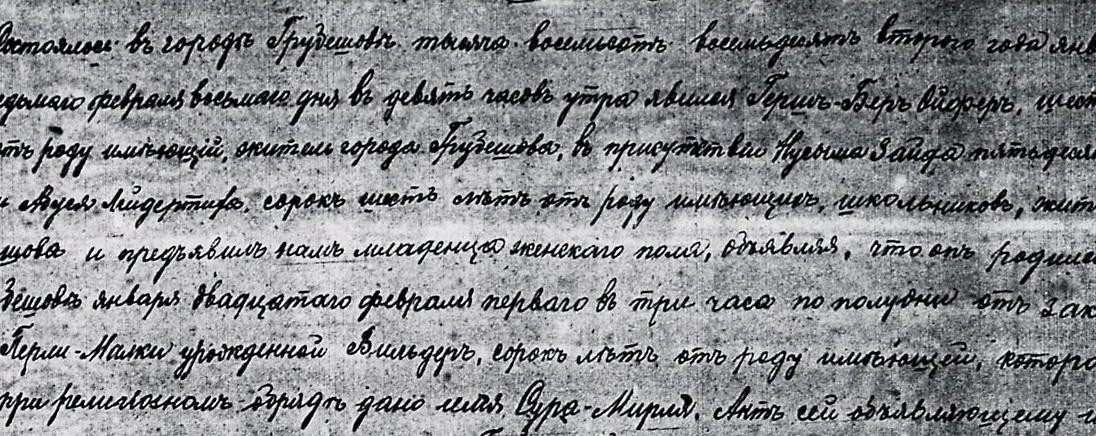 Состоялось въ городѣ Грубешовѣ тысяча восемьсотъ восемьдесятъ второго года янв
едьмаго февраля восьмаго дня въ девять часовъ утра явился Гершъ-Беръ Ойферъ, шест
отъ роду имѣющій, житель города Грубешова, въ присутствіи Нусыма Зайда пятьдесят
и Авуся сорокъ шесть лѣтъ отъ роду имѣющихъ, школьниковъ, жит
шова и предъявилъ намъ младенца женскаго пола, объявляя, что онъ родился
бешовѣ января двадцатаго февраля перваго въ три часа по полудни отъ зак
Перли-Малки урожденной Вильдеръ, сорокъ лѣтъ отъ роду имѣющей, которо
при религіозномъ обрядѣ дано имя Сура-Мирля. Актъ сей объявляющему и